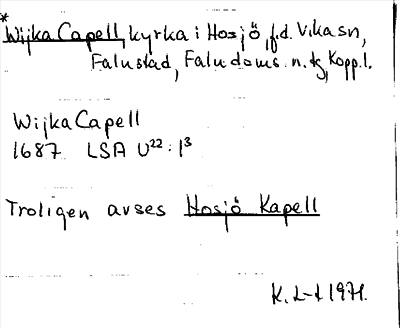 *
Wijka Capell, kyrka i Hosjö, f.d. Vika sn,
Falu stad, Falu doms. n. tg, Kopp. l.
Wijka Capell
1687 LSA U²² : 1³
Troligen avses Hosjö Kapell
K. L-t 1971.